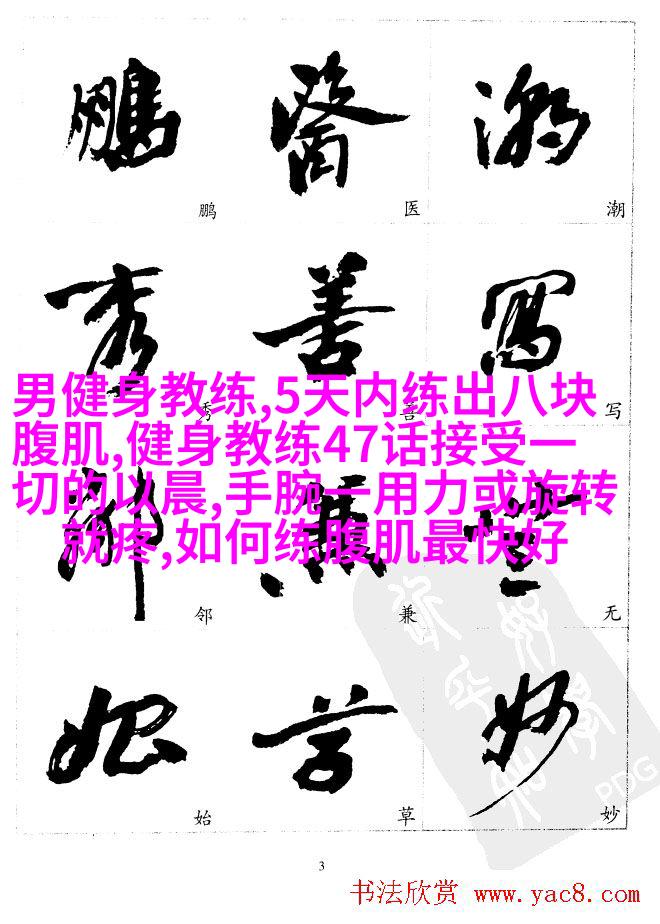 鹏 医 潮
秀 善 写
男健身教练,5天内练出八块
腹肌,健身教练47话接受一
切的以晨,手腕一用力或旋转
就疼,如何练腹肌最快好
邻 兼 无
始 草 妙
PDG
3
书法欣赏 www.yac8.com